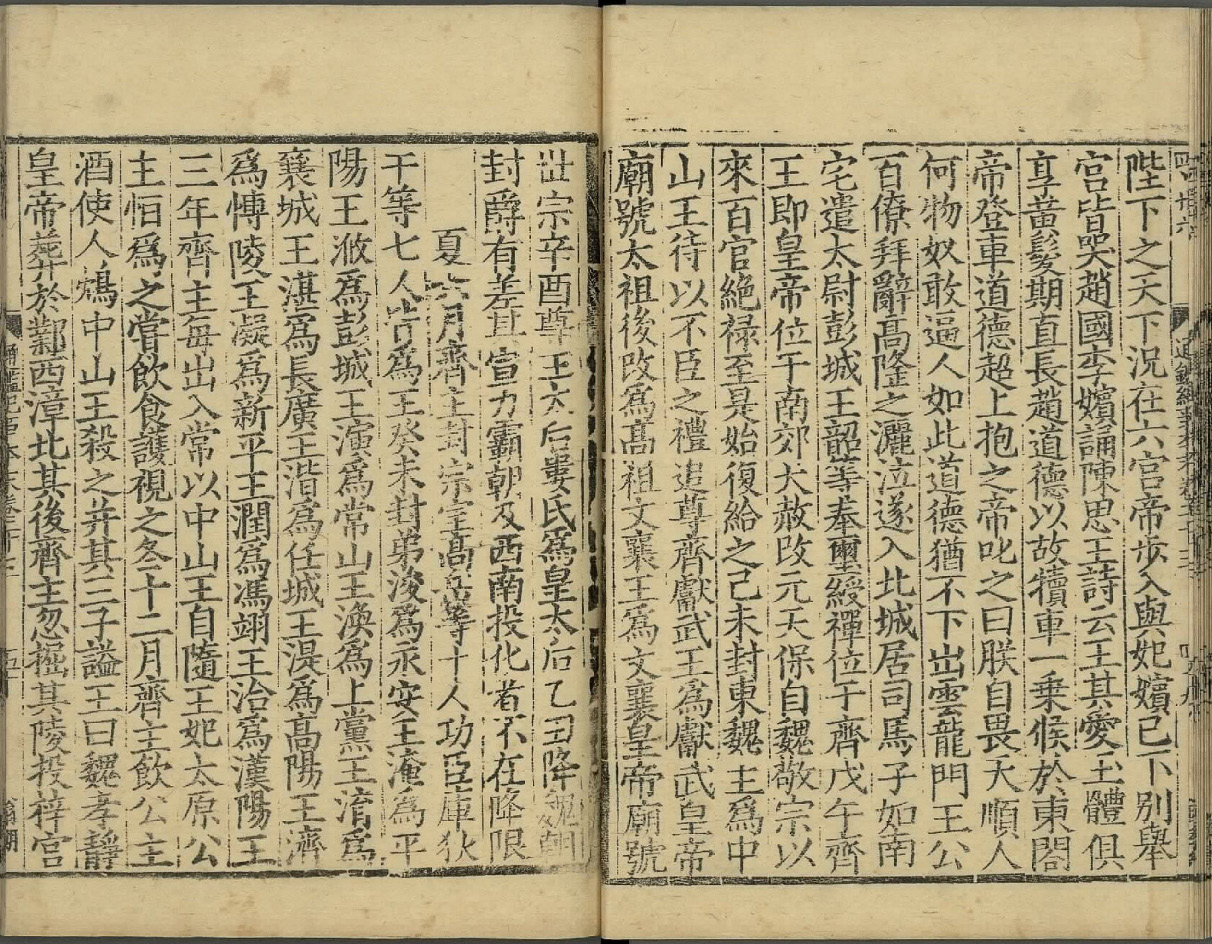 陛下之天下況在六宮帝步入與妃嬪已下別舉
宮皆哭趙國李嬪誦陳思王詩云王其愛玉體俱
享黃髮期直長趙道德以故犢車一乗候於東閤
帝登車道德超上抱之帝叱之曰朕自畏天順人
何物奴敢逼人如此道德猶不下出雲龍門王公
百僚拜辭高隆之灑泣遂入北城居司馬子如南
宅遣太尉彭城王韶等奉璽綬禪位于齊戊午齊
王即皇帝位于南郊大赦改元天保自魏敬宗以
來百官絶禄至是始復給之己未封東魏主爲中
山王待以不臣之禮追尊齊獻武王爲獻武皇帝
廟號太祖後改爲高祖文襄王爲文襄皇帝廟號
世宗辛酉尊王太后婁氏爲皇太后乙丑降魏朝
封爵有差其宣力霸朝及西南投化者不在降限
夏六月齊主封宗室高岳等十人功臣庫狄
干等七人皆爲王癸未封弟浚爲永安王淹爲平
陽王浟爲彭城王演爲常山王渙爲上黨王淯爲
襄城王湛爲長廣王湝爲任城王湜爲高陽王濟
爲博陵王凝爲新平王潤爲馮翊王洽爲漢陽王
三年齊主每出入常以中山王自隨王妃太原公
主恒爲之嘗飲食護視之冬十二月齊主飲公主
酒使人鴆中山王殺之并其三子謚王曰魏孝靜
皇帝葬於鄴西漳北其後齊主忽掘其陵投梓宮